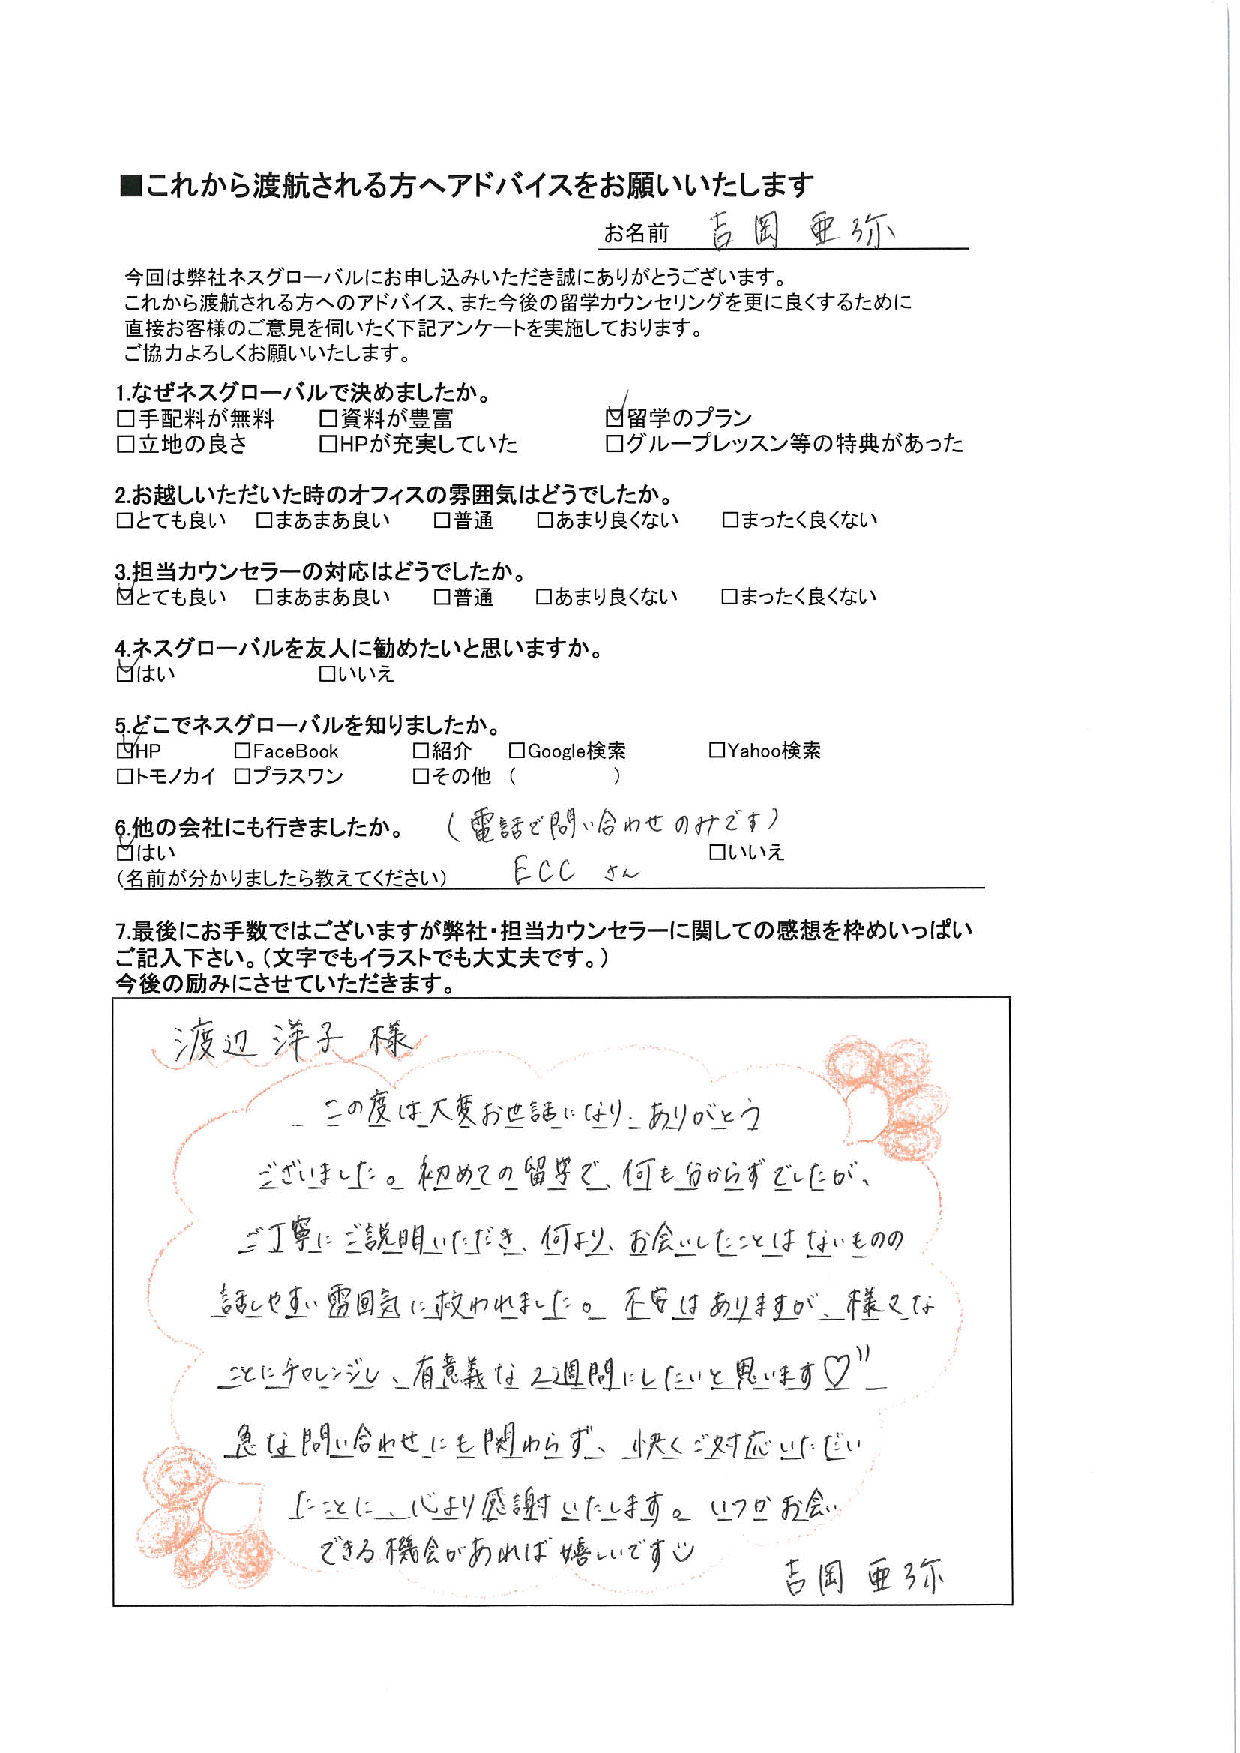 ■これから渡航される方へアドバイスをお願いいたします
お名前 吉岡 亜弥
今回は弊社ネスグローバルにお申し込みいただき誠にありがとうございます。
これから渡航される方へのアドバイス、また今後の留学カウンセリングを更に良くするために
直接お客様のご意見を伺いたく下記アンケートを実施しております。
ご協力よろしくお願いいたします。
1.なぜネスグローバルで決めましたか。
□手配料が無料 □資料が豊富 ☑留学のプラン
□立地の良さ □HPが充実していた □グループレッスン等の特典があった
2.お越しいただいた時のオフィスの雰囲気はどうでしたか。
□とても良い □まあまあ良い □普通 □あまり良くない □まったく良くない
3.担当カウンセラーの対応はどうでしたか。
☑とても良い □まあまあ良い □普通 □あまり良くない □まったく良くない
4.ネスグローバルを友人に勧めたいと思いますか。
☑はい □いいえ
5.どこでネスグローバルを知りましたか。
☑HP □FaceBook □紹介 □Google検索 □Yahoo検索
□トモノカイ □プラスワン □その他 ( )
6.他の会社にも行きましたか。 (電話で問い合わせのみです)
☑はい □いいえ
(名前が分かりましたら教えてください) ECC さん
7.最後にお手数ではございますが弊社・担当カウンセラーに関しての感想を枠めいっぱい
ご記入下さい。(文字でもイラストでも大丈夫です。)
今後の励みにさせていただきます。
渡辺 洋子 様
この度は大変お世話になり、ありがとう
ございました。初めての留学で、何も分からずでしたが、
ご丁寧にご説明いただき、何より、お会いしたことはないものの
話しやすい雰囲気に救われました。不安はありますが、様々な
ことにチャレンジし、有意義な2週間にしたいと思います♡
急な問い合わせにも関わらず、快くご対応いただい
たことに、心より感謝いたします。いつかお会い
できる機会があれば嬉しいです☺
吉岡 亜弥